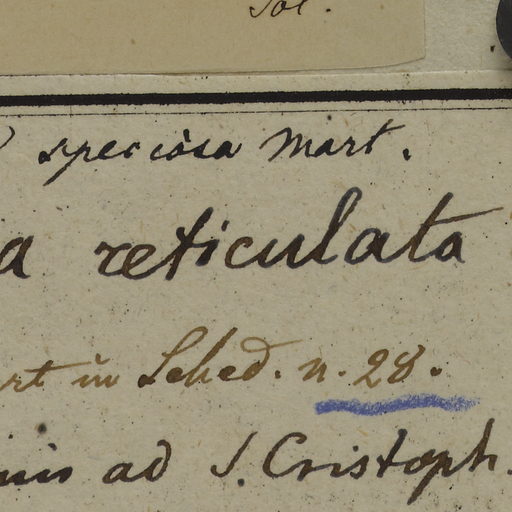 Sol.
speciosa Mart.
a reticulata
rt in Sched. n. 28.
nis ad S. Cristoph.